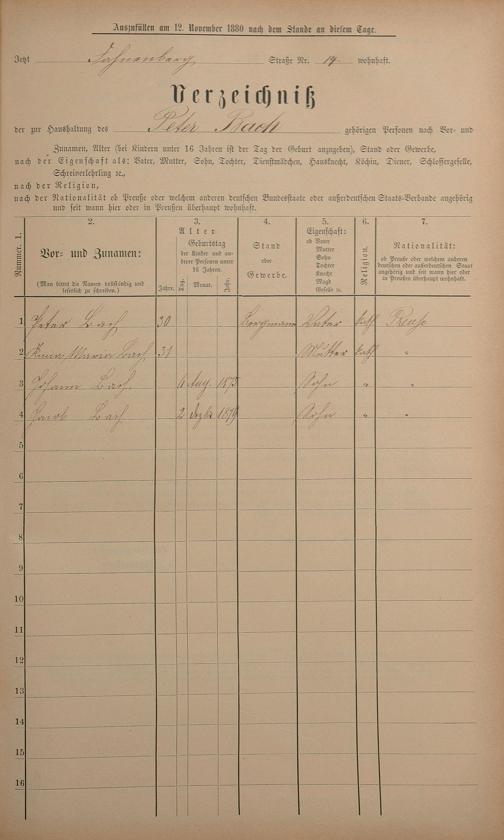 Auszufüllen am 12. November 1880 nach dem Stande an diesem Tage.
Jetzt Fahnenberg Straße Nr. 14. wohnhaft.
Verzeichniß
der zur Haushaltung des Peter Bach gehörigen Personen nach Vor- und
Zunamen, Alter (bei Kindern unter 16 Jahren ist der Tag der Geburt anzugeben), Stand oder Gewerbe,
nach der Eigenschaft als: Vater, Mutter, Sohn, Tochter, Dienstmädchen, Hausknecht, Köchin, Diener, Schlossergeselle,
Schreiberlehrling ꝛc.,
nach der Religion,
nach der Nationalität ob Preuße oder welchem anderen deutschen Bundesstaate oder außerdeutschen Staats-Verbande angehörig
und seit wann hier oder in Preußen überhaupt wohnhaft.
Nummer. 1.
2.
Vor- und Zunamen:
(Man bittet die Namen vollständig und
leserlich zu schreiben.)
3.
Alter
Jahre.
Geburtstag
der Kinder und an-
derer Personen unter
16 Jahren.
Tag. Monat. Jahr.
4.
Stand
oder
Gewerbe.
5.
Eigenschaft:
ob Vater
Mutter
Sohn
Tochter
Knecht
Magd
Geselle ꝛc.
6.
Religion.
7.
Nationalität:
ob Preuße oder welchem anderen
deutschen oder außerdeutschen Staat
angehörig und seit wann hier oder
in Preußen überhaupt wohnhaft.
1 Peter Bach 30 Bergmann Vater kath. Preuße
2 Anna Maria Bach 31 Mutter kath. "
3 Johann Bach 6 Aug. 1875 Sohn " "
4 Jacob Bach 2 Dezbr 1879 Sohn " "
5
6
7
8
9
10
11
12
13
14
15
16